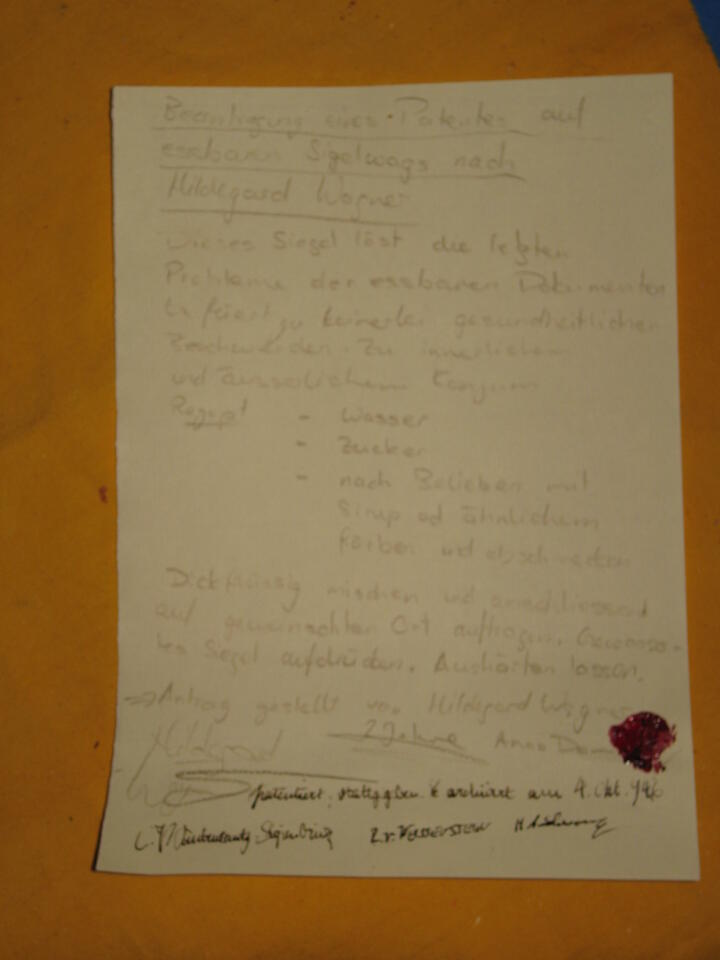 Beantragung eines Patentes auf
essbaren Sigelwags nach
Hildegard Wagner
Dieses Siegel löst die letzten
Probleme der essbaren Dokumenten
zu keinerlei gesundheitlichen
Beschwerden. Zu innerlichem
und äusserlichem Konsum
Rezept - Wasser
- Zucker
- nach Belieben mit
Sirup od ähnlichem
färben und abschmecken
Dickflüssig mischen und anschliessend
auf gewünschten Ort auftragen. Gewünsch-
tes Siegel aufdrücken. Aushärten lassen.
Antrag gestellt von Hildegard Wagner
Hildegard 2 Jahre Anno Dom
patentiert, stattggben. & archiviert am 4. Okt.